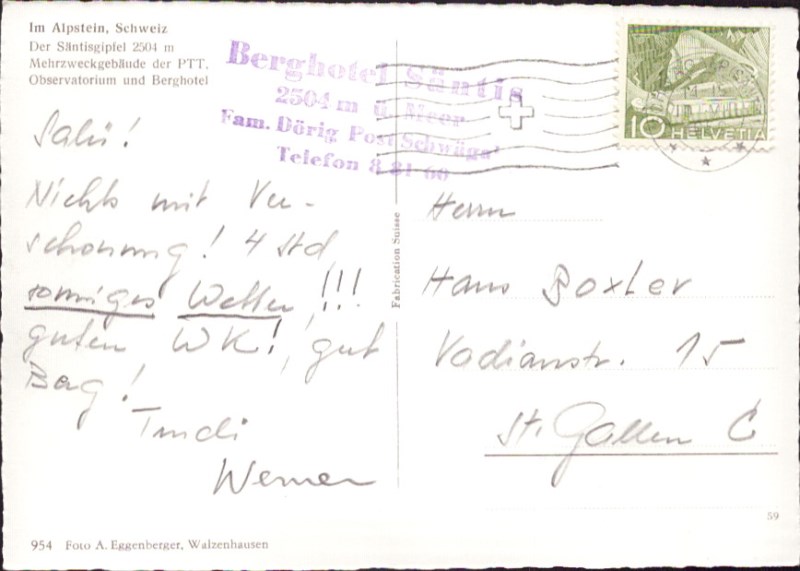 Im Alpstein, Schweiz
Der Säntisgipfel 2504 m
Mehrzweckgebäude der PTT,
Observatorium und Berghotel
Berghotel Säntis
2504 m ü. Meer
Fam. Dörig Post Schwäga'
Telefon 8 81 60
10 HELVETIA
Salü!
Nichts mit Ver-
schonung! 4 Std
sonniges Wetter!!!
guten WK!, gut
Berg!
Trudi
Werner
Fabrication Suisse
Herrn
Hans Boxler
Vadianstr. 15
St. Gallen C
59
954 Foto A. Eggenberger, Walzenhausen